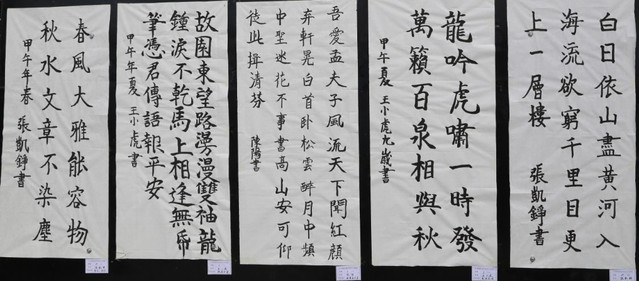 白日依山盡黃河入
海流欲窮千里目更
上一層樓 張凱錚書
龍吟虎嘯一時發
萬籟百泉相與秋
甲午夏 王小虎九歲書
吾愛孟夫子風流天下聞紅顏
弃軒冕白首卧松雲醉月中頻
中聖迷花不事書高山安可仰
徒此揖清芬 陳陽書
故園東望路漫漫雙袖龍
鍾淚不乾馬上相逢無帋
筆憑君傳語報平安
甲午年夏 王小虎書
春風大雅能容物
秋水文章不染塵
甲午年春 張凱錚書